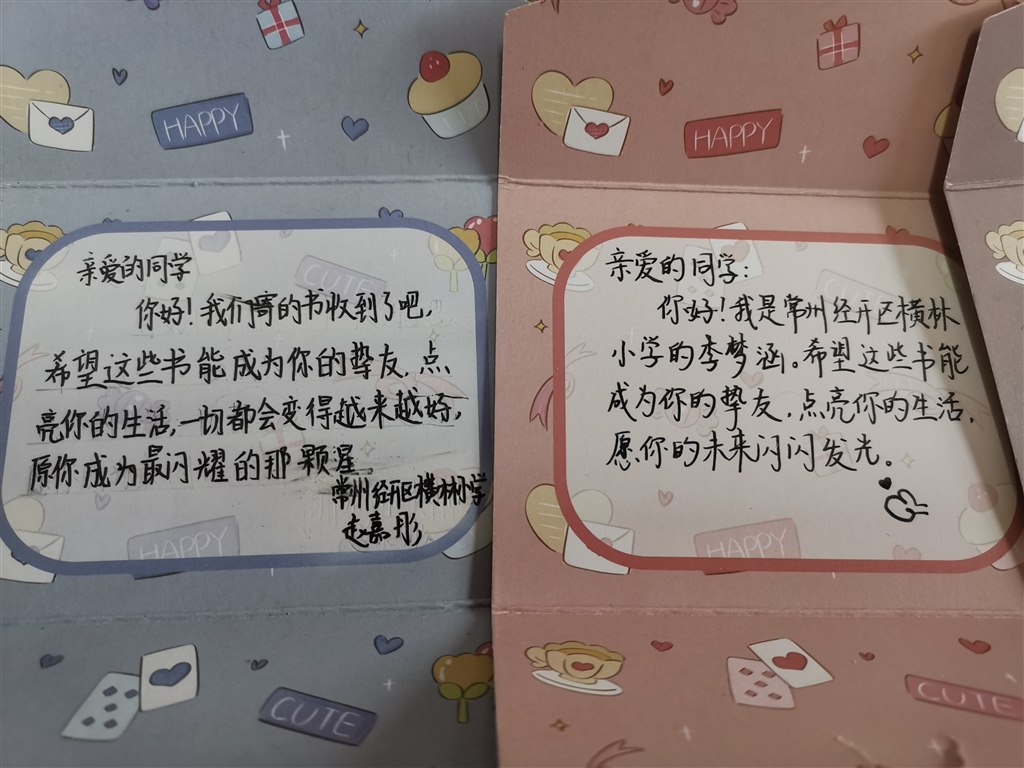 HAPPY
亲爱的同学
你好！我们寄的书收到了吧，
希望这些书能成为你的挚友，点
亮你的生活，一切都会变得越来越好，
愿你成为最闪耀的那颗星
常州经开区横林小学
赵嘉彤
CUTE
HAPPY
CUTE
HAPPY
亲爱的同学：
你好！我是常州经开区横林
小学的李梦涵。希望这些书能
成为你的挚友，点亮你的生活，
愿你的未来闪闪发光。
HAPPY
CUTE